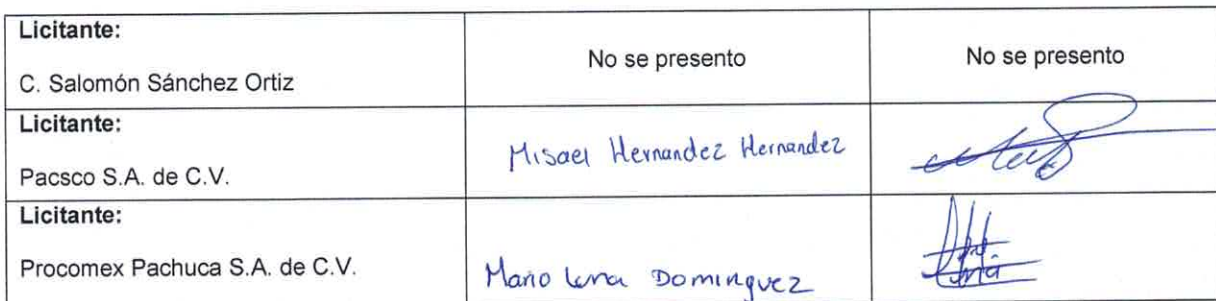 Licitante:
C. Salomón Sánchez Ortiz
No se presento
No se presento
Licitante:
Pacsco S.A. de C.V.
Misael Hernandez Hernandez
Licitante:
Procomex Pachuca S.A. de C.V.
Mario Dominguez